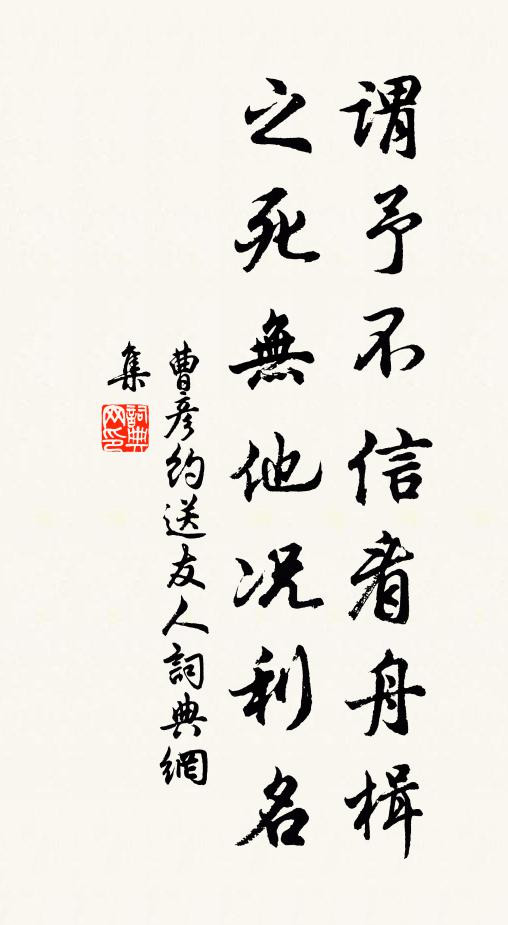 謂予不信者舟楫
之死無他况利名
曹彦約送友人詞典網
集
詞典
网印